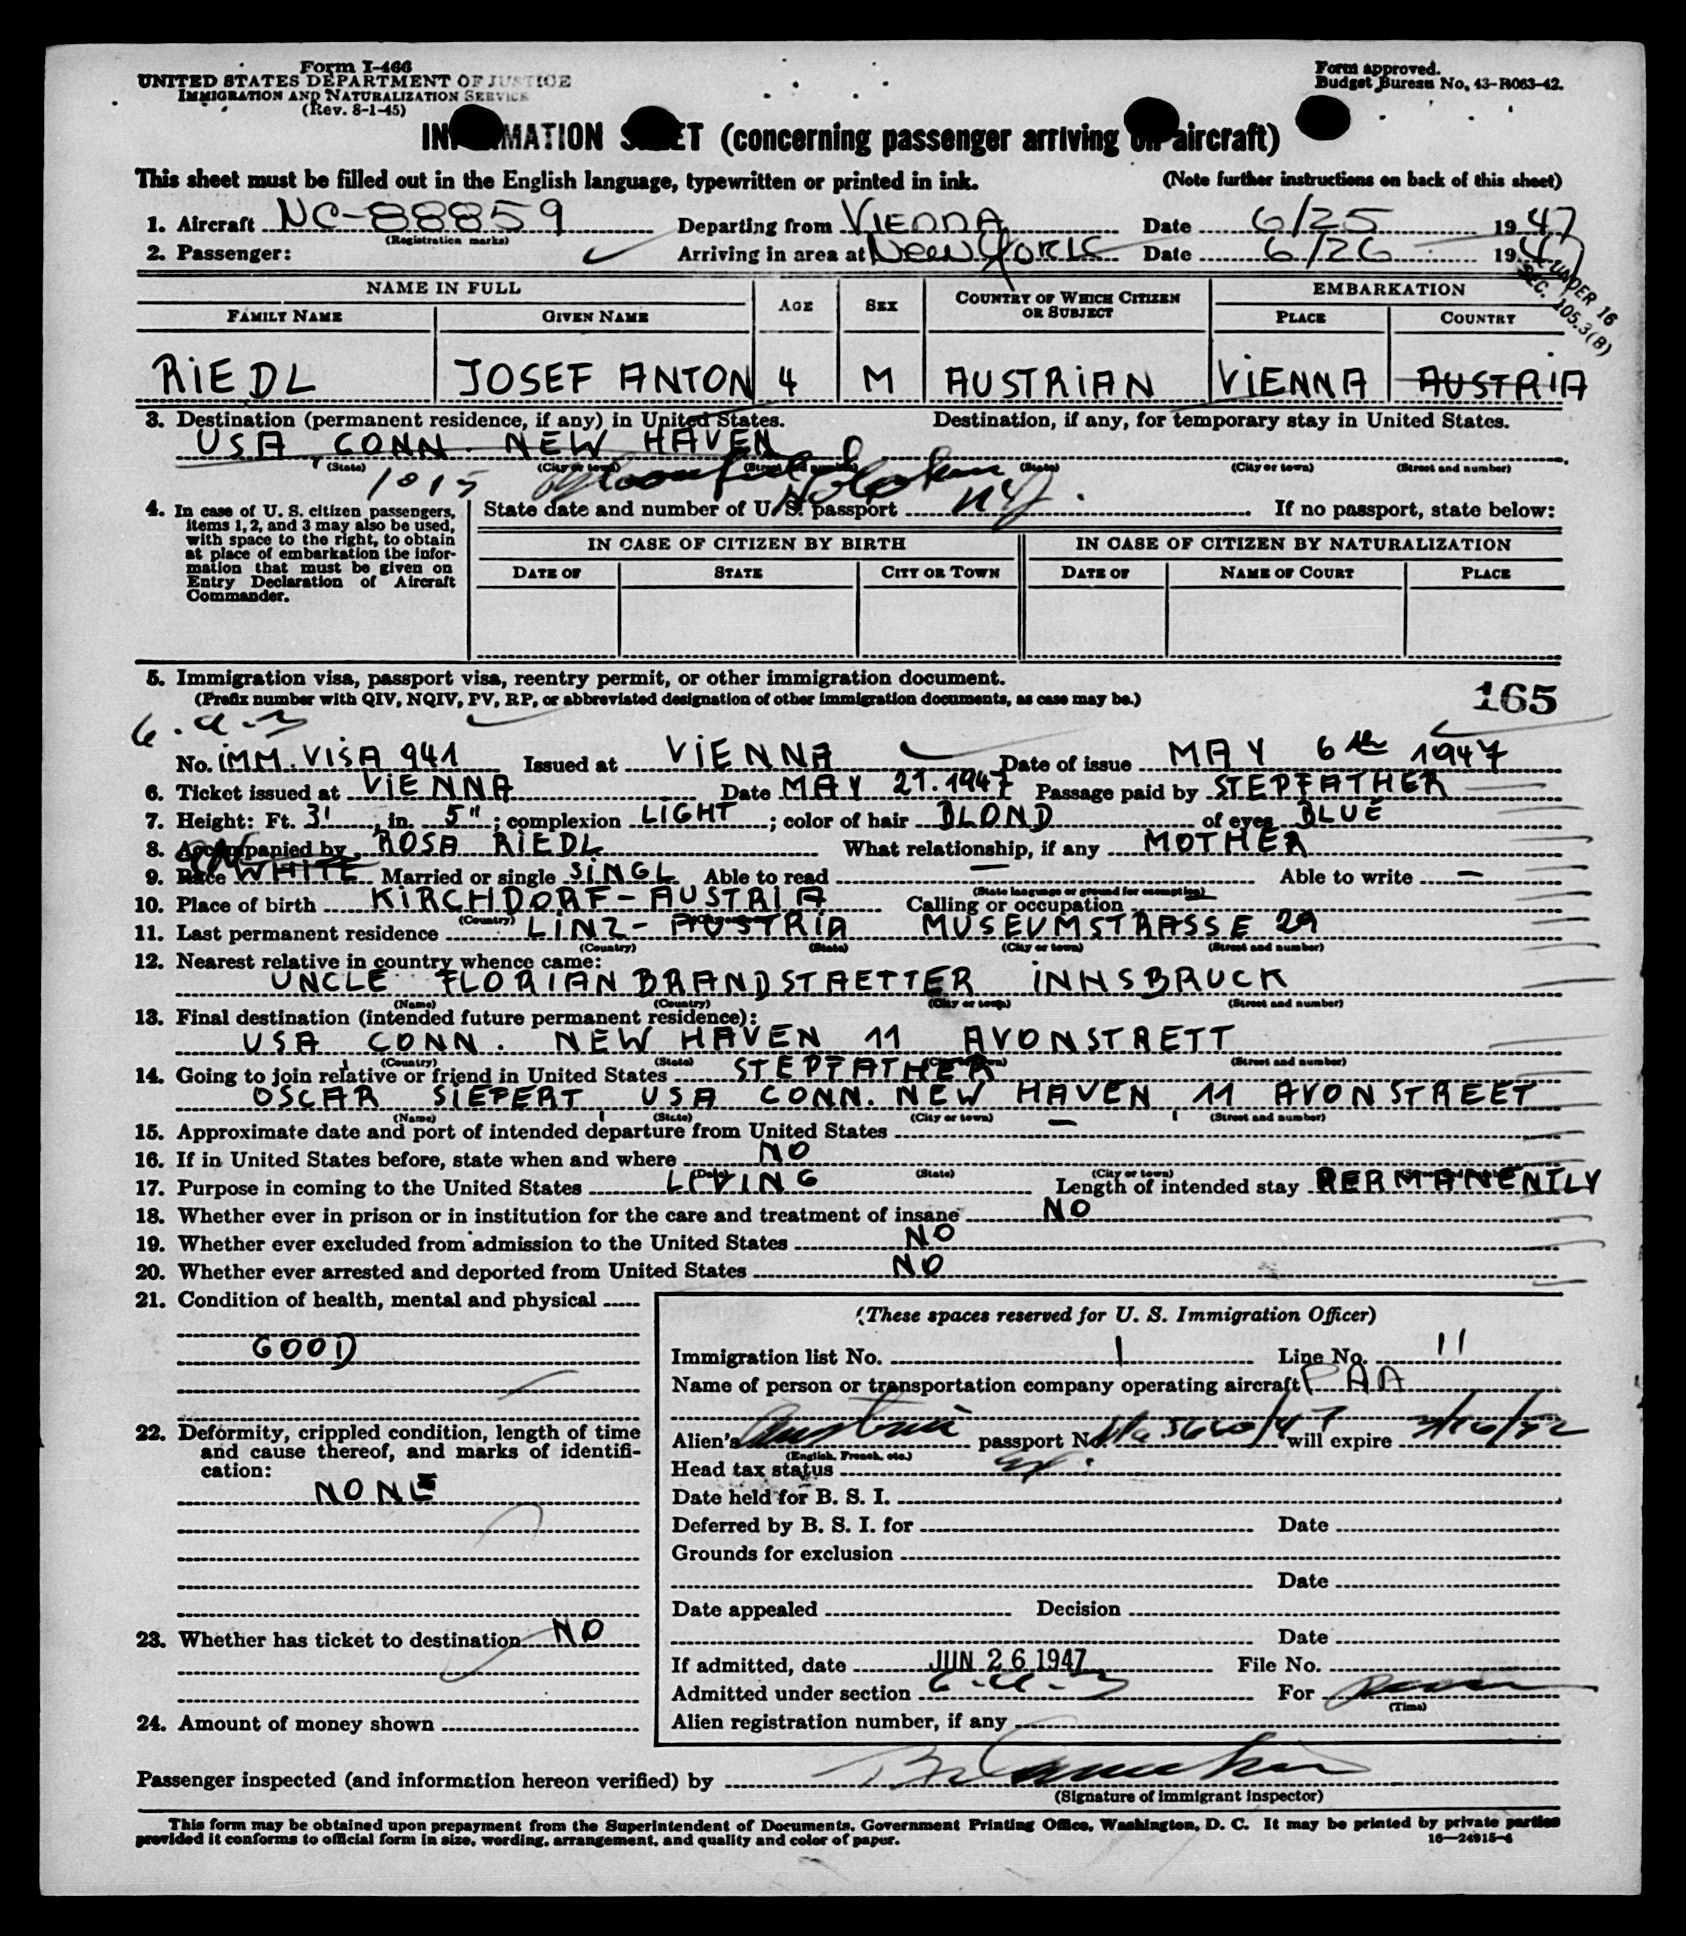 Form I-466
UNITED STATES DEPARTMENT OF JUSTICE
IMMIGRATION AND NATURALIZATION SERVICE
(Rev. 8-1-45)
Form approved.
Budget Bureau No. 43-R063-42.
INFORMATION SHEET (concerning passenger arriving on aircraft)
This sheet must be filled out in the English language, typewritten or printed in ink. (Note further instructions on back of this sheet)
1. Aircraft NC-88859 Departing from VIENNA Date 6/25 1947
(Registration marks)
2. Passenger: Arriving in area at New York Date 6/26 1947
UNDER 16
SEC. 105.3(B)
NAME IN FULL AGE SEX COUNTRY OF WHICH CITIZEN OR SUBJECT EMBARKATION
FAMILY NAME GIVEN NAME PLACE COUNTRY
RIEDL JOSEF ANTON 4 M AUSTRIAN VIENNA AUSTRIA
3. Destination (permanent residence, if any) in United States. Destination, if any, for temporary stay in United States.
USA, CONN. NEW HAVEN
(State) (City or town) (Street and number) (State) (City or town) (Street and number)
1015 Hoboken
N.J.
4. In case of U. S. citizen passengers, items 1, 2, and 3 may also be used, with space to the right, to obtain at place of embarkation the information that must be given on Entry Declaration of Aircraft Commander.
State date and number of U. S. passport If no passport, state below:
IN CASE OF CITIZEN BY BIRTH IN CASE OF CITIZEN BY NATURALIZATION
DATE OF STATE CITY OR TOWN DATE OF NAME OF COURT PLACE
5. Immigration visa, passport visa, reentry permit, or other immigration document.
(Prefix number with QIV, NQIV, PV, RP, or abbreviated designation of other immigration documents, as case may be.)
165
6-a-3
No. IMM. VISA 941 Issued at VIENNA Date of issue MAY 6th 1947
6. Ticket issued at VIENNA Date MAY 21. 1947 Passage paid by STEPFATHER
7. Height: Ft. 3', in. 5"; complexion LIGHT; color of hair BLOND of eyes BLUE
8. Accompanied by ROSA RIEDL What relationship, if any MOTHER
9. Race WHITE Married or single SINGL Able to read — Able to write —
(State language or ground for exemption)
10. Place of birth KIRCHDORF - AUSTRIA Calling or occupation —
(Country)
11. Last permanent residence LINZ - AUSTRIA MUSEUMSTRASSE 29
(Country) (State) (City or town) (Street and number)
12. Nearest relative in country whence came:
UNCLE FLORIAN BRANDSTAETTER INNSBRUCK
(Name) (Country) (City or town) (Street and number)
13. Final destination (intended future permanent residence):
USA, CONN. NEW HAVEN 11 AVONSTRETT
(Country) (State) (City or town) (Street and number)
14. Going to join relative or friend in United States STEPFATHER
OSCAR SIEFERT, USA CONN. NEW HAVEN, 11 AVONSTREET
(Name) (State) (City or town) (Street and number)
15. Approximate date and port of intended departure from United States —
16. If in United States before, state when and where NO
(Date) (State) (City or town) (Street and number)
17. Purpose in coming to the United States LIVING Length of intended stay PERMANENTLY
18. Whether ever in prison or in institution for the care and treatment of insane NO
19. Whether ever excluded from admission to the United States NO
20. Whether ever arrested and deported from United States NO
21. Condition of health, mental and physical
GOOD
22. Deformity, crippled condition, length of time and cause thereof, and marks of identification:
NONE
23. Whether has ticket to destination NO
24. Amount of money shown
(These spaces reserved for U. S. Immigration Officer)
Immigration list No. 1 Line No. 11
Name of person or transportation company operating aircraft PAA
Alien's Austrian passport No. 5660/47 will expire
(English, French, etc.)
Head tax status
Date held for B. S. I.
Deferred by B. S. I. for Date
Grounds for exclusion
Date
Date appealed Decision
Date
If admitted, date JUN 26 1947 File No.
Admitted under section 6-a-3 For
(Time)
Alien registration number, if any
Passenger inspected (and information hereon verified) by
(Signature of immigrant inspector)
This form may be obtained upon prepayment from the Superintendent of Documents, Government Printing Office, Washington, D. C. It may be printed by private parties
provided it conforms to official form in size, wording, arrangement, and quality and color of paper. 16—24915-4